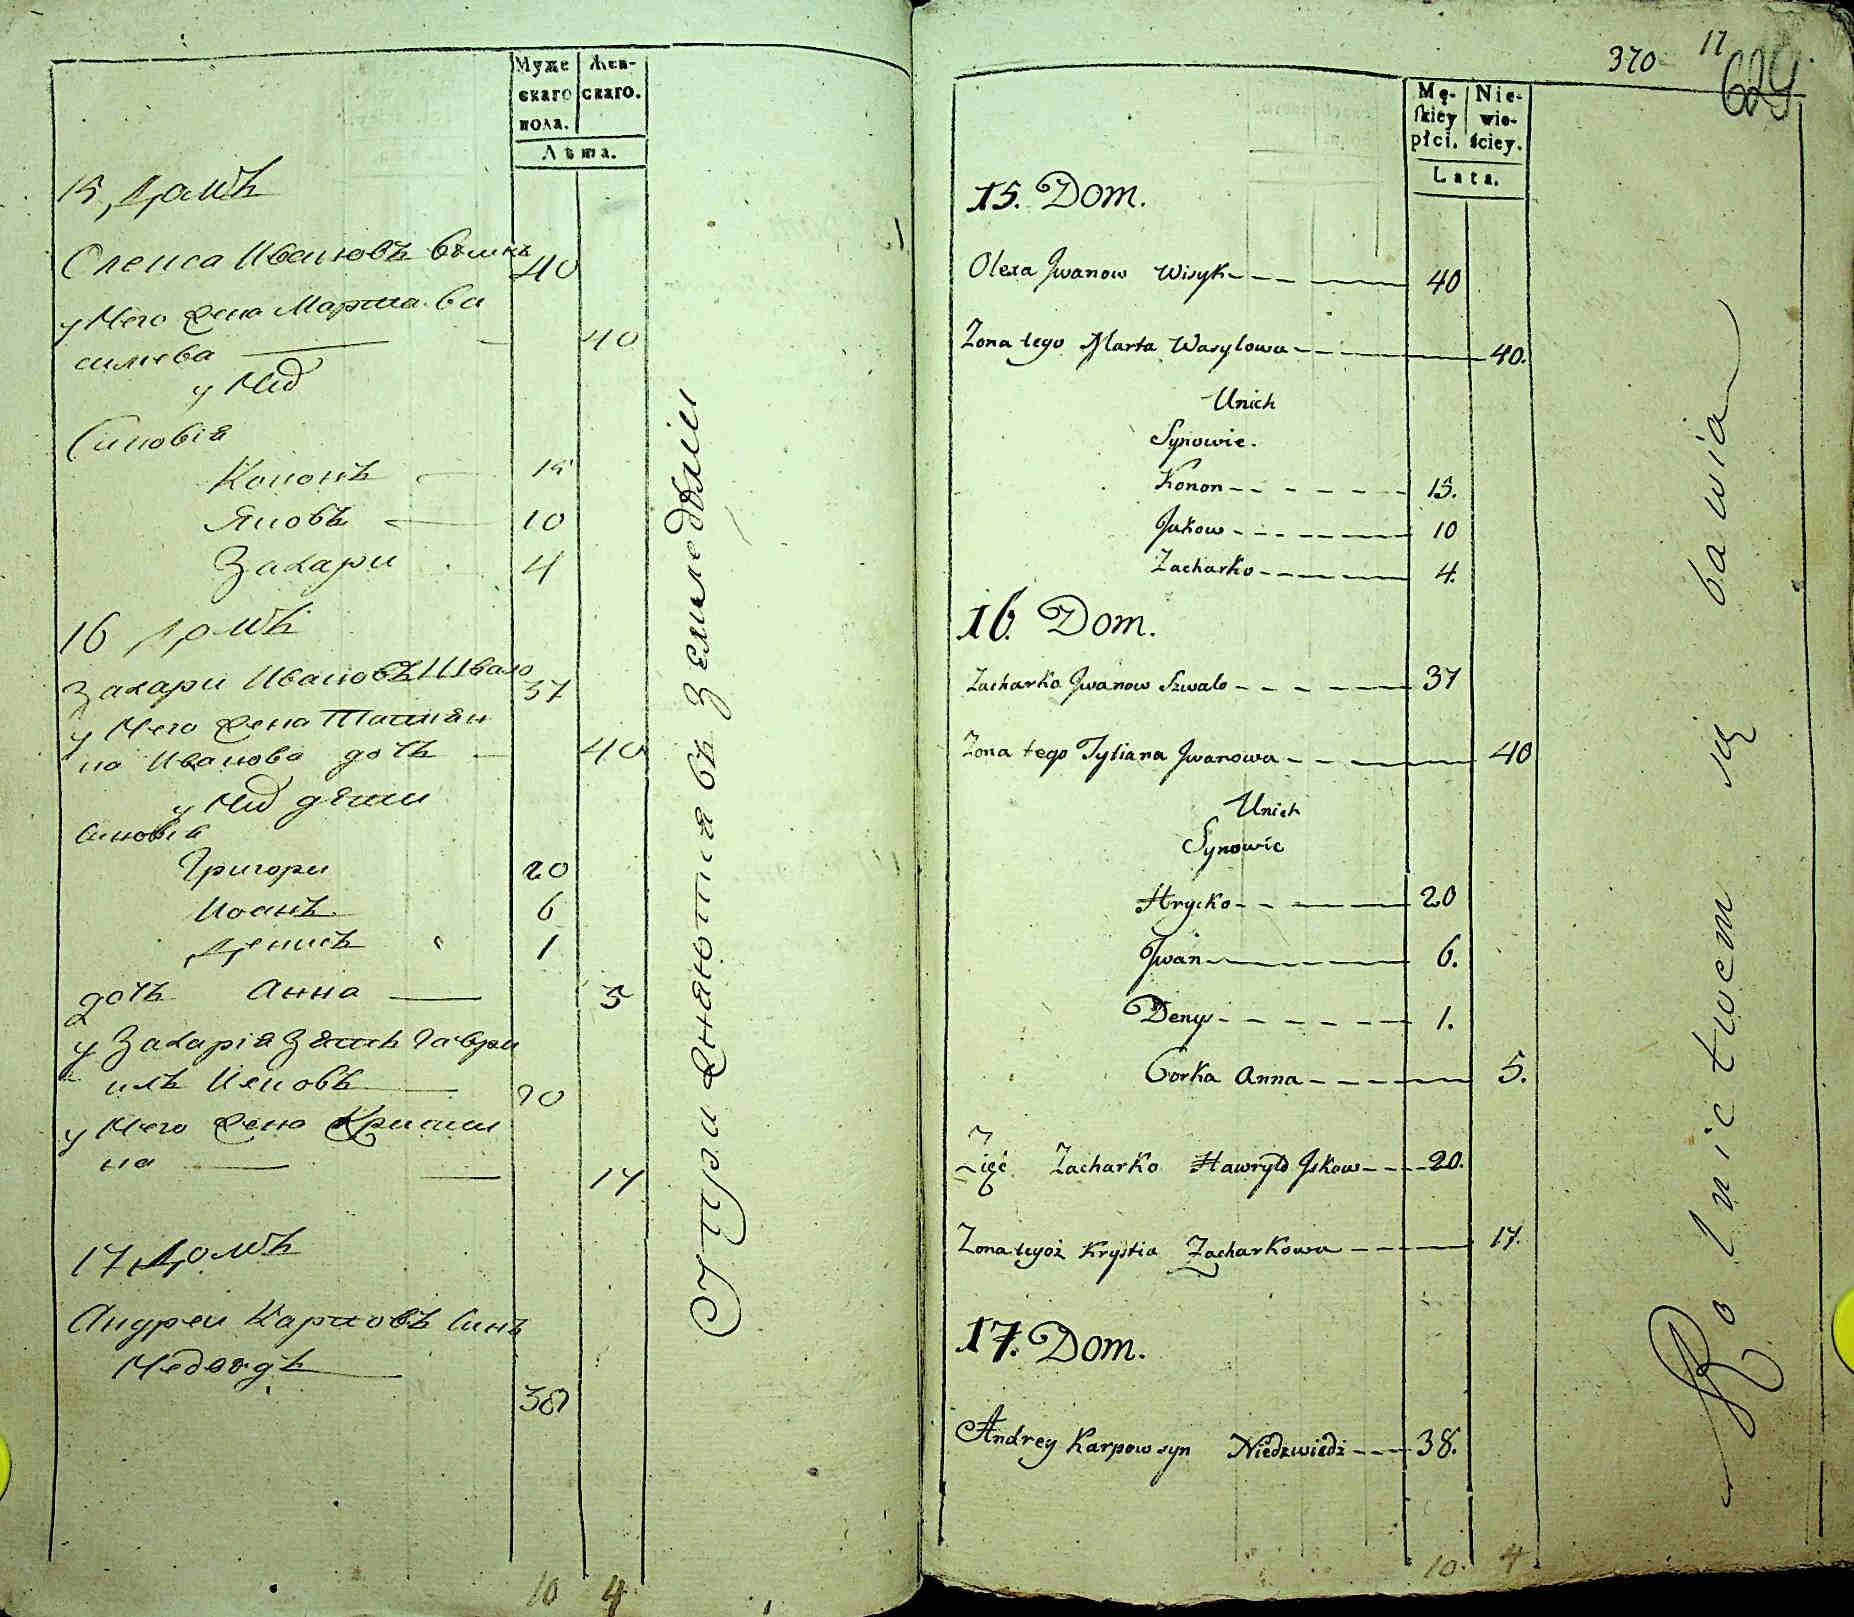 Муже
скаго
пола.
Жен-
скаго.
Лѣта.
15 Домъ
Олекса Ивановъ 40
у Него Жена Марта Ва
силева 40
у Них
Синовія
Кононъ 15
Яковъ 10
Захари 4
16 Домъ
Захари Ивановъ Швало 37
у Него Жена Татиян
на Иванова дочь 40
у Них дети
Синовія
Григори 20
Иоанъ 6
Денисъ 1
дочь Анна 5
у Захарія Зять Гаври
илъ Исковъ 20
у Него Жена Кристи
на 17
17 Домъ
Андреи Карповъ Синъ
Медведъ
38
10 4
въ Земледелии
370 17
629
Mę-
skiey
płci.
Nie-
wie-
ściey.
Lata.
15. Dom.
Olexa Jwanow Wisyk 40
Zona tego Marta Wasylowa 40.
Unich
Synowie.
Konon 15.
Jakow 10
Zacharko 4.
16. Dom.
Zacharko Jwanow Szwalo 37
Zona tego Tyliana Jwanowa 40
Unich
Synowie
Hrycko 20
Jwan 6.
Denys 1.
Corka Anna 5.
Zięć Zacharko Hawryło Jskow 20.
Zona tegoż Krystia Zacharkowa 17.
17. Dom.
Andrey Karpow syn Niedzwiedź 38.
10. 4
Rolnictwem się bawia